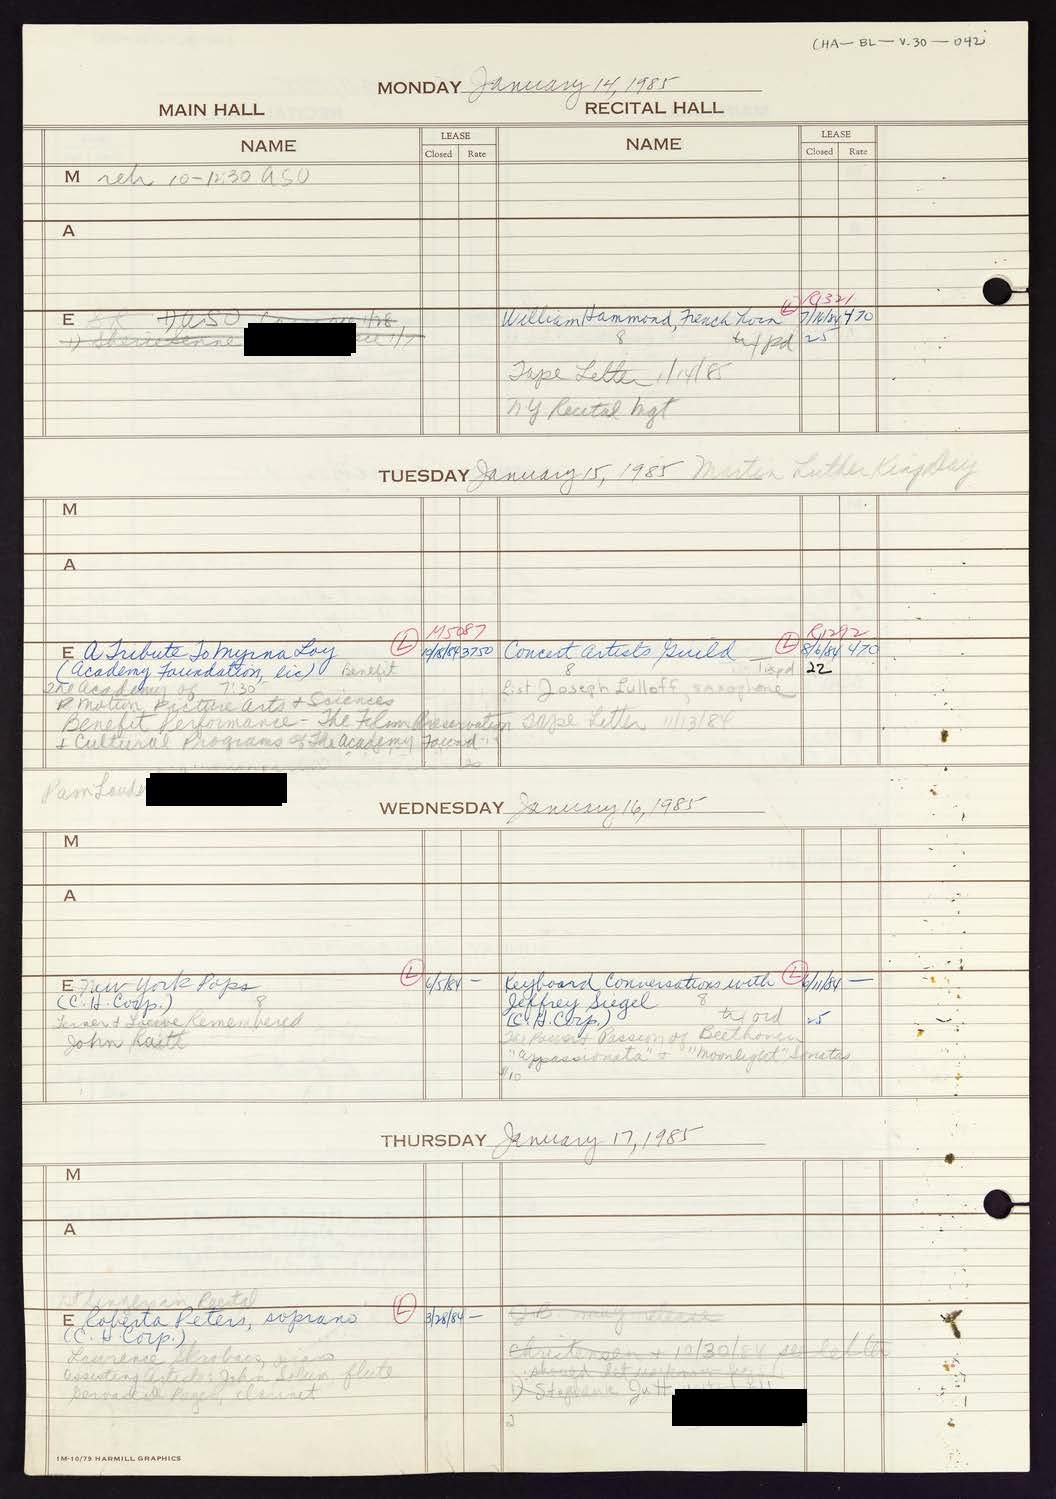 CHA-BL-V.30-042
MONDAY January 14, 1985
MAIN HALL RECITAL HALL
NAME LEASE Closed Rate NAME LEASE Closed Rate
M reh 10-12:30 ASO
A
R1321
E 1) ASO 1/28 William Hammond, French horn L 7/16/84 470
1) 8 pd 25
Tape Letter 1/14/85
NY Recital Mgt
TUESDAY January 15, 1985 Martin Luther King Day
M
A
M5087 R1292
E A Tribute To Myrna Loy L 10/18/84 3750 Concert Artists Guild L 8/6/84 470
(Academy Foundation, lic) Benefit 8 pd 22
The Academy of 7:30 List Joseph Lulloff, saxophone
Motion Picture Arts + Sciences
Benefit Performance - The Film Preservation Tape Letter 11/13/84
+ Cultural Programs of The Academy Found
Pam
WEDNESDAY January 16, 1985
M
A
E New York Pops L 6/5/84 - Keyboard Conversations with L 6/11/84 -
(C.H. Corp.) 8 Jeffrey Siegel 8
Lerner + Loewe Remembered (C.H. Corp.) ord 25
John Raitt The Power + Passion of Beethoven
"Appassionata" + "Moonlight" Sonatas
$10
THURSDAY January 17, 1985
M
A
Recital
E Roberta Peters, soprano L 3/28/84 - may release
(C.H. Corp.)
Laurence Skrobacs, piano Christensen + 10/30/84 see letter
assisting artists: John Solum flute should let us know
Page, clarinet 1) Stephanie
2
1M-10/79 HARMILL GRAPHICS